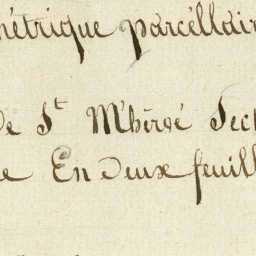 métrique parcéllair
de St M'hervé Sect
e En deux feuill